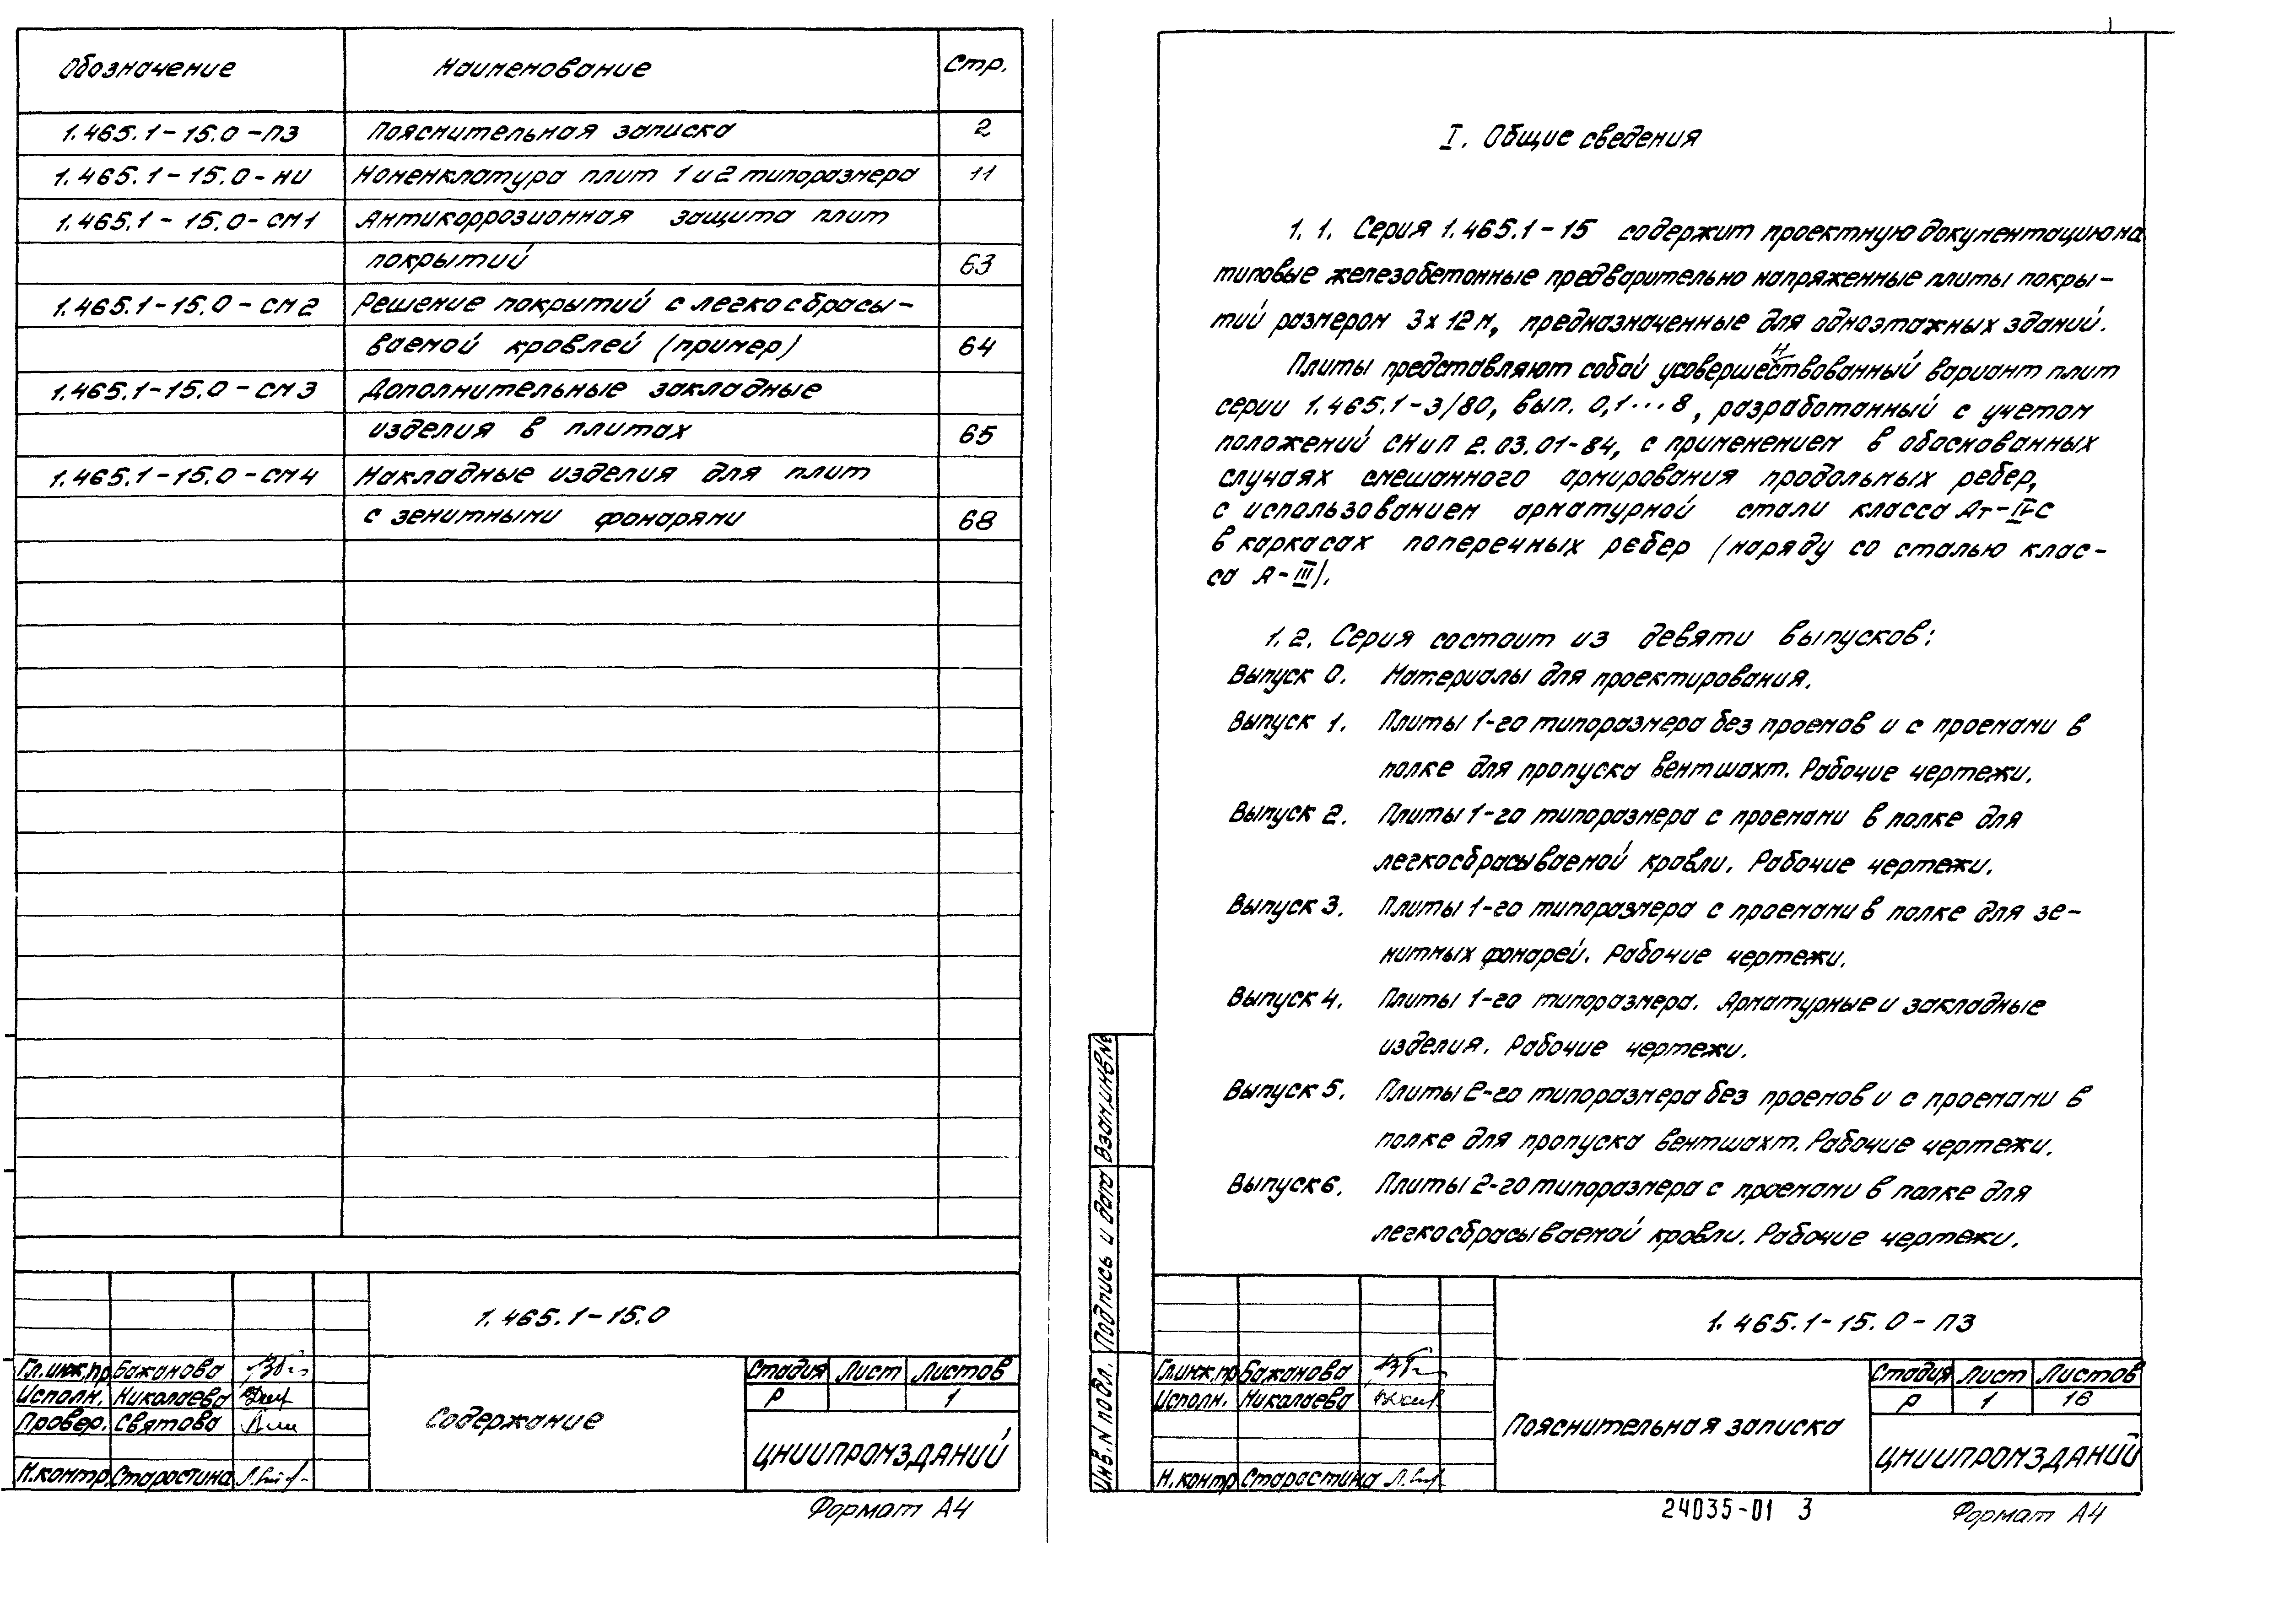 Обозначение Наименование Стр.
1.465.1-15.0-ПЗ Пояснительная записка 2
1.465.1-15.0-НИ Номенклатура плит 1 и 2 типоразмера 11
1.465.1-15.0-СМ1 Антикоррозионная защита плит
покрытий 63
1.465.1-15.0-СМ2 Решение покрытий с легкосбрасы-
ваемой кровлей (пример) 64
1.465.1-15.0-СМ3 Дополнительные закладные
изделия в плитах 65
1.465.1-15.0-СМ4 Накладные изделия для плит
с зенитными фонарями 68
1.465.1-15.0
Гл.инж.пр Бажанова
Исполн. Николаева
Провер. Святова
Н.контр Старостина
Содержание
Стадия Лист Листов
Р 1
ЦНИИПРОМЗДАНИЙ
Формат А4
I. Общие сведения
1.1. Серия 1.465.1-15 содержит проектную документацию на
типовые железобетонные предварительно напряженные плиты покры-
тий размером 3х12м, предназначенные для одноэтажных зданий.
Плиты представляют собой усовершенствованный вариант плит
серии 1.465.1-3/80, вып. 0,1...8, разработанный с учетом
положений СНиП 2.03.01-84, с применением в обоснованных
случаях смешанного армирования продольных ребер,
с использованием арматурной стали класса Ат-IVС
в каркасах поперечных ребер (наряду со сталью клас-
са А-III).
1.2. Серия состоит из девяти выпусков:
Выпуск 0. Материалы для проектирования.
Выпуск 1. Плиты 1-го типоразмера без проемов и с проемами в
полке для пропуска вентшахт. Рабочие чертежи.
Выпуск 2. Плиты 1-го типоразмера с проемами в полке для
легкосбрасываемой кровли. Рабочие чертежи.
Выпуск 3. Плиты 1-го типоразмера с проемами в полке для зе-
нитных фонарей. Рабочие чертежи.
Выпуск 4. Плиты 1-го типоразмера. Арматурные и закладные
изделия. Рабочие чертежи.
Выпуск 5. Плиты 2-го типоразмера без проемов и с проемами в
полке для пропуска вентшахт. Рабочие чертежи.
Выпуск 6. Плиты 2-го типоразмера с проемами в полке для
легкосбрасываемой кровли. Рабочие чертежи.
Взам.инв.№
Подпись и дата
Инв.N подл.
1.465.1-15.0-ПЗ
Гл.инж.пр Бажанова
Исполн. Николаева
Н.контр Старостина
Пояснительная записка
Стадия Лист Листов
Р 1 16
ЦНИИПРОМЗДАНИЙ
24035-01 3
Формат А4